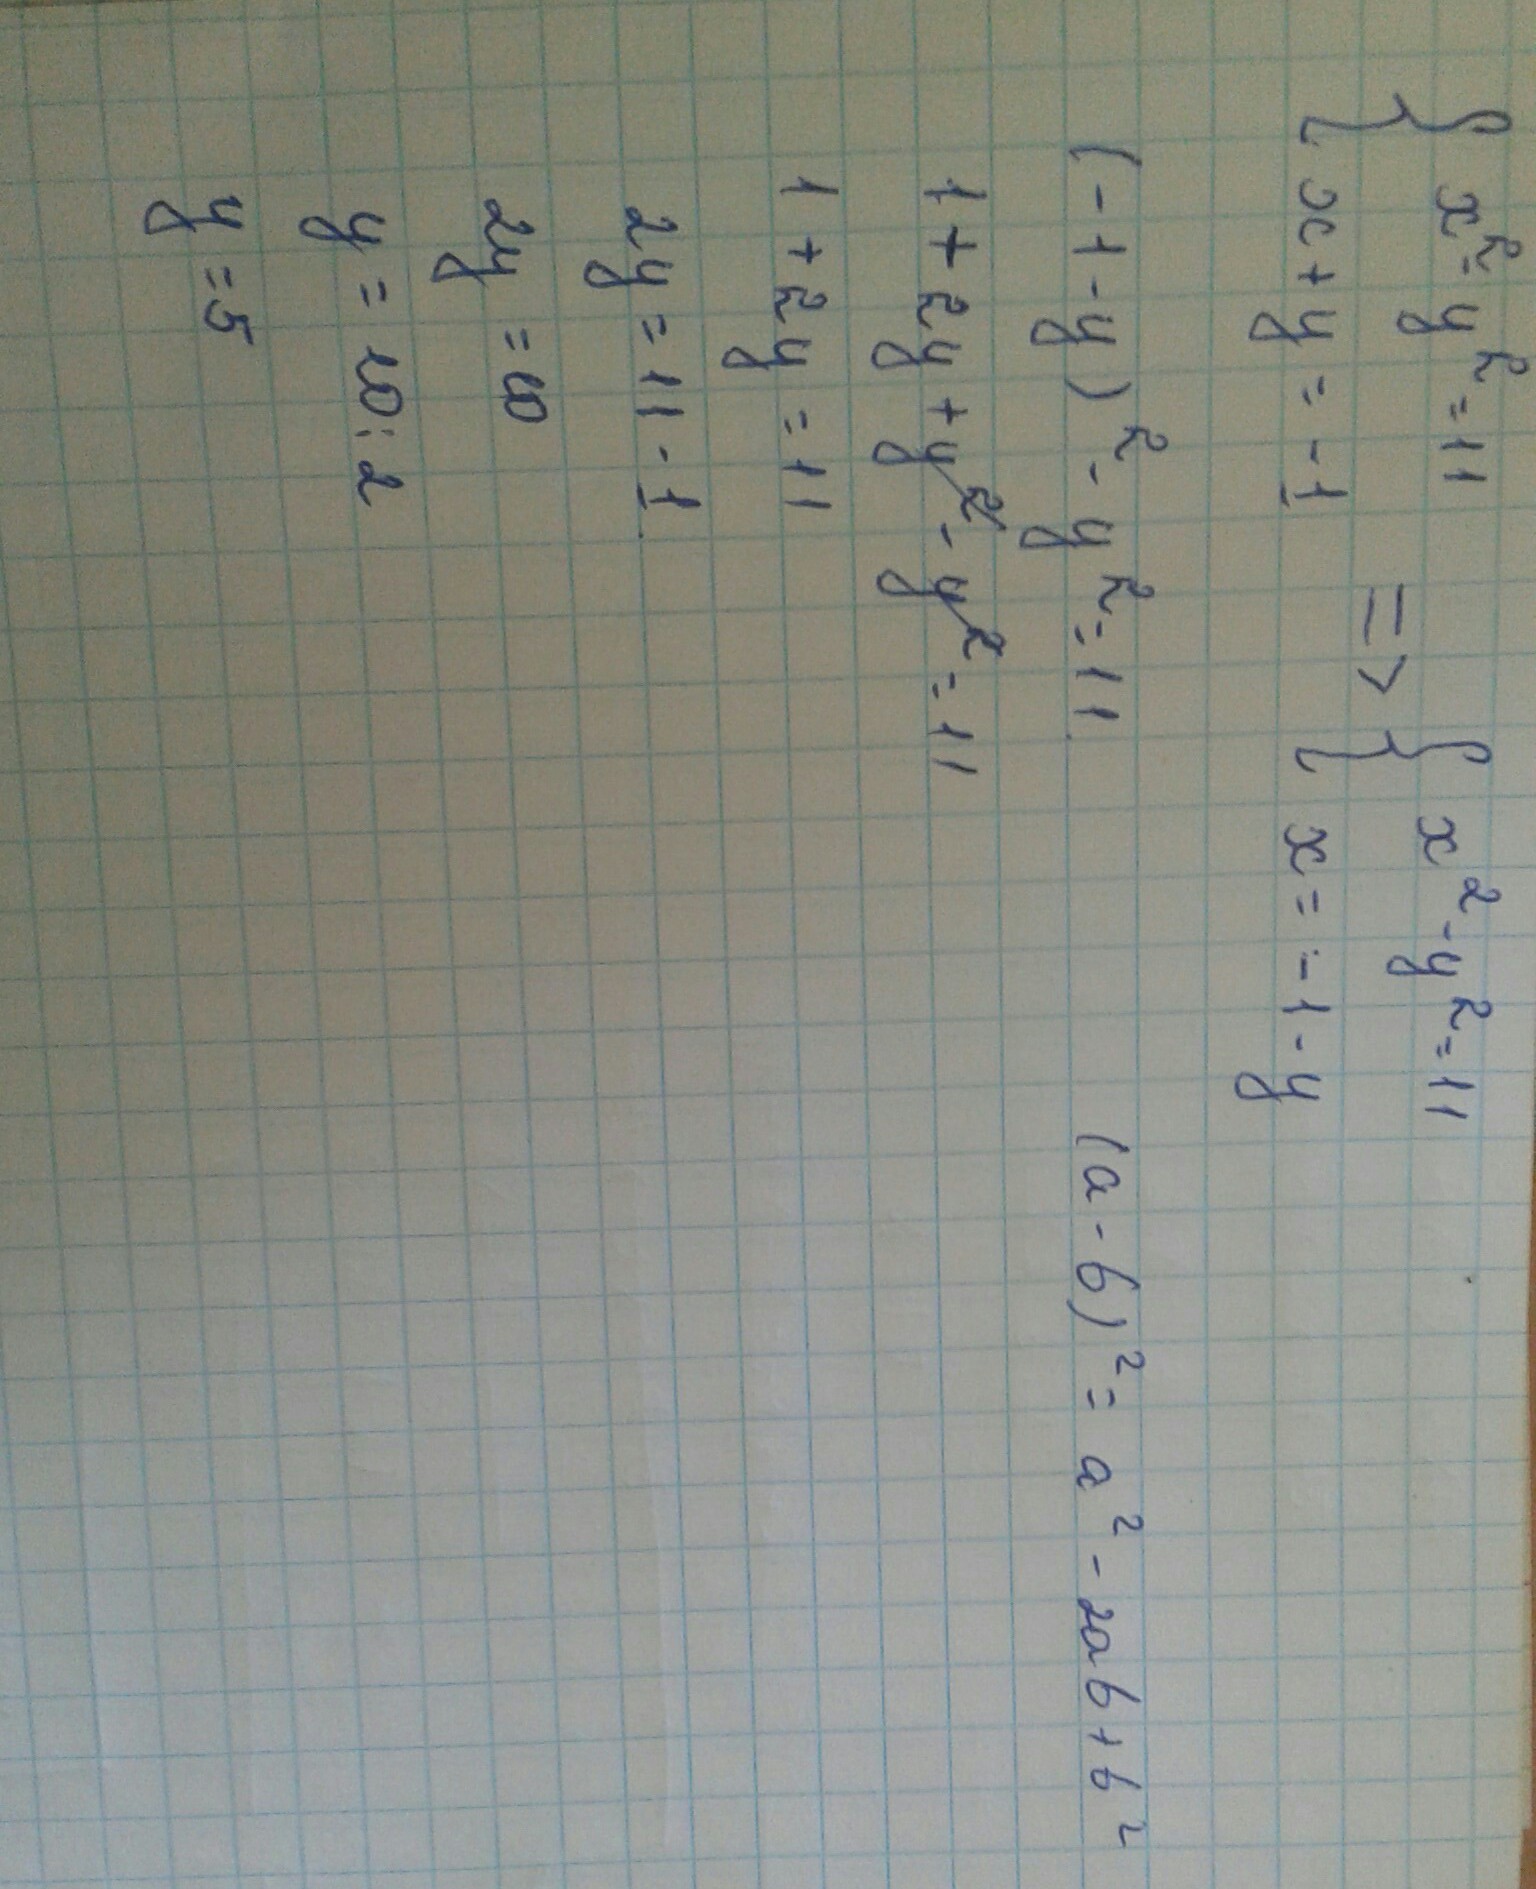 { x² - y² = 11 => { x² - y² = 11
x + y = -1 x = -1 - y
(-1 - y)² - y² = 11 (a - b)² = a² - 2ab + b²
1 + 2y + y² - y² = 11
1 + 2y = 11
2y = 11 - 1
2y = 10
y = 10 : 2
y = 5